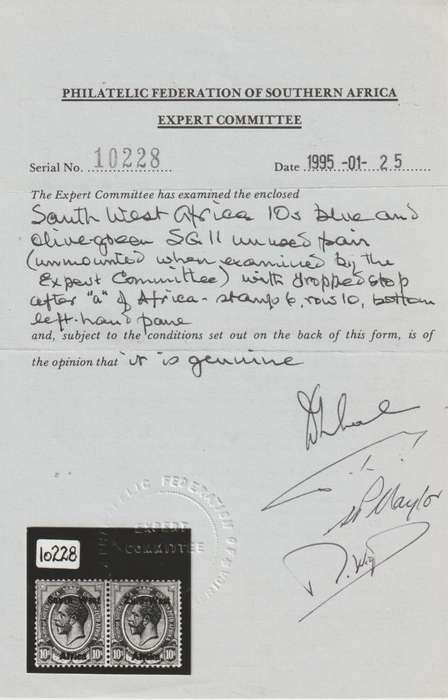 PHILATELIC FEDERATION OF SOUTHERN AFRICA
EXPERT COMMITTEE
Serial No. 10228 Date 1995 -01- 25
The Expert Committee has examined the enclosed
South West Africa 10s blue and
olive-green SG 11 unused pair
(unmounted when examined by the
Expert Committee) with dropped stop
after "a" of Africa - stamp 6, row 10, bottom
left-hand pane
and, subject to the conditions set out on the back of this form, is of
the opinion that it is genuine
PHILATELIC FEDERATION OF
EXPERT
COMMITTEE
10228
10s 10s 10s